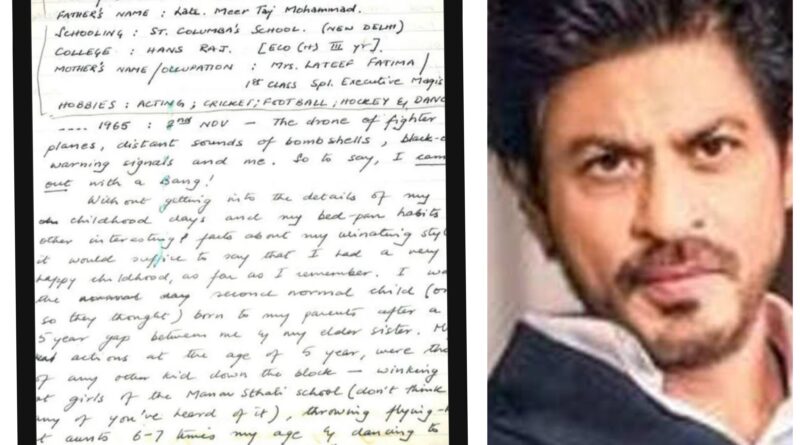 FATHER'S NAME : Late. Meer Taj Mohammad.
SCHOOLING : ST. COLUMBA'S SCHOOL. (NEW DELHI)
COLLEGE : HANS RAJ. [ECO (H) III yr].
MOTHER'S NAME/OCCUPATION : MRS. LATEEF FATIMA/
1st CLASS Spl. Executive Magis
HOBBIES : ACTING; CRICKET; FOOTBALL; HOCKEY & DANC
.... 1965 : 2nd NOV — The drone of fighter
planes, distant sounds of bombshells, black-o
warning signals and me. So to say, I came
out with a Bang!
Without getting into the details of my
childhood days and my bed-pan habits
other interesting facts about my urinating styl
it would suffice to say that I had a very
happy childhood, as far as I remember. I wa
the second normal child (or
so they thought) born to my parents after a
5 year gap between me & my elder sister. M
actions at the age of 5 year, were the
of any other kid down the block — winking
at girls of the Manav Sthali school (don't think
any of you've heard of it), throwing flying-
at aunts 6-7 times my age & dancing to